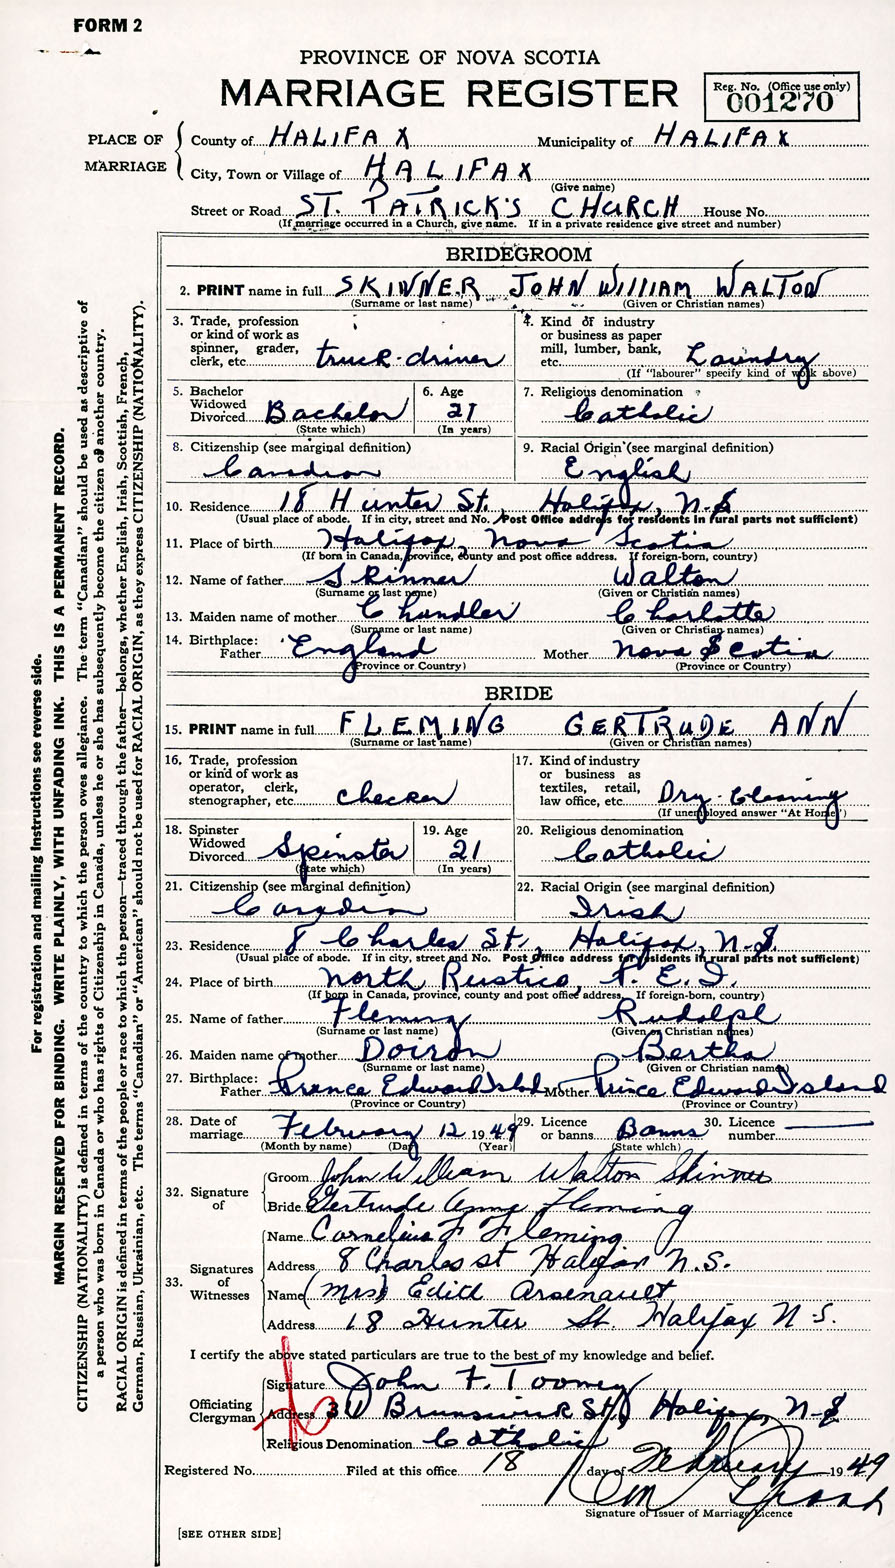 FORM 2
PROVINCE OF NOVA SCOTIA
MARRIAGE REGISTER
Reg. No. (Office use only)
001270
PLACE OF MARRIAGE
County of HALIFAX Municipality of HALIFAX
City, Town or Village of HALIFAX
(Give name)
Street or Road ST. PATRICK'S CHURCH House No.
(If marriage occurred in a Church, give name. If in a private residence give street and number)
BRIDEGROOM
2. PRINT name in full SKINNER JOHN WILLIAM WALTON
(Surname or last name) (Given or Christian names)
3. Trade, profession or kind of work as spinner, grader, clerk, etc. truck-driver
4. Kind of industry or business as paper mill, lumber, bank, etc. Laundry
(If "labourer" specify kind of work above)
5. Bachelor Widowed Divorced Bachelor
(State which)
6. Age 21
(In years)
7. Religious denomination Catholic
8. Citizenship (see marginal definition) Canadian
9. Racial Origin (see marginal definition) English
10. Residence 18 Hunter St., Halifax, N.S.
(Usual place of abode. If in city, street and No. Post Office address for residents in rural parts not sufficient)
11. Place of birth Halifax, Nova Scotia
(If born in Canada, province, county and post office address. If foreign-born, country)
12. Name of father Skinner Walton
(Surname or last name) (Given or Christian names)
13. Maiden name of mother Chandler Charlotte
(Surname or last name) (Given or Christian names)
14. Birthplace: Father England Mother Nova Scotia
(Province or Country) (Province or Country)
BRIDE
15. PRINT name in full FLEMING GERTRUDE ANN
(Surname or last name) (Given or Christian names)
16. Trade, profession or kind of work as operator, clerk, stenographer, etc. checker
17. Kind of industry or business as textiles, retail, law office, etc. Dry-Cleaning
(If unemployed answer "At Home")
18. Spinster Widowed Divorced Spinster
(State which)
19. Age 21
(In years)
20. Religious denomination Catholic
21. Citizenship (see marginal definition) Canadian
22. Racial Origin (see marginal definition) Irish
23. Residence 8 Charles St., Halifax, N.S.
(Usual place of abode. If in city, street and No. Post Office address for residents in rural parts not sufficient)
24. Place of birth North Rustico, P.E.I.
(If born in Canada, province, county and post office address. If foreign-born, country)
25. Name of father Fleming Rudolph
(Surname or last name) (Given or Christian names)
26. Maiden name of mother Doiron Bertha
(Surname or last name) (Given or Christian name)
27. Birthplace: Father Prince Edward Island Mother Prince Edward Island
(Province or Country) (Province or Country)
28. Date of marriage February 12 1949
(Month by name) (Day) (Year)
29. Licence or banns Banns
(State which)
30. Licence number
32. Signature of
Groom John William Walton Skinner
Bride Gertrude Anne Fleming
33. Signatures of Witnesses
Name Cornelius F Fleming
Address 8 Charles st Halifax N.S.
Name (Mrs) Edith Arsenault
Address 18 Hunter St. Halifax N.S.
I certify the above stated particulars are true to the best of my knowledge and belief.
Officiating Clergyman
Signature John F. Toomey
Address Brunswick St., Halifax, N.S
Religious Denomination Catholic
Registered No. Filed at this office 18 day of February 1949
Signature of Issuer of Marriage Licence
[SEE OTHER SIDE]
For registration and mailing Instructions see reverse side.
MARGIN RESERVED FOR BINDING. WRITE PLAINLY, WITH UNFADING INK. THIS IS A PERMANENT RECORD.
CITIZENSHIP (NATIONALITY) is defined in terms of the country to which the person owes allegiance. The term "Canadian" should be used as descriptive of
a person who was born in Canada or who has rights of Citizenship in Canada, unless he or she has subsequently become the citizen of another country.
RACIAL ORIGIN is defined in terms of the people or race to which the person—traced through the father—belongs, whether English, Irish, Scottish, French,
German, Russian, Ukrainian, etc. The terms "Canadian" or "American" should not be used for RACIAL ORIGIN, as they express CITIZENSHIP (NATIONALITY).